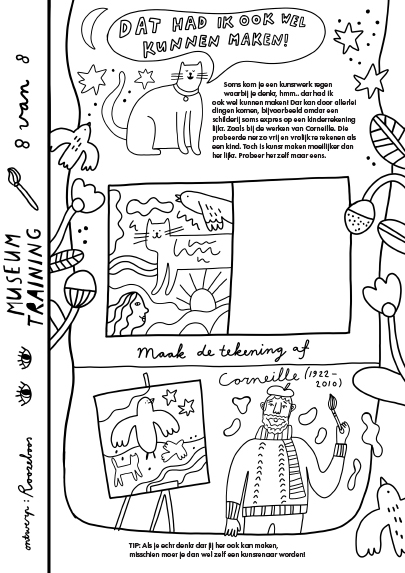 DAT HAD IK OOK WEL
KUNNEN MAKEN!
Soms kom je een kunstwerk tegen
waarbij je denkt, hmm.. dat had ik
ook wel kunnen maken! Dat kan door allerlei
dingen komen, bijvoorbeeld omdat een
schilderij soms expres op een kindertekening
lijkt. Zoals bij de werken van Corneille. Die
probeerde net zo vrij en vrolijk te tekenen als
een kind. Toch is kunst maken moeilijker dan
het lijkt. Probeer het zelf maar eens.
Maak de tekening af
Corneille (1922-
2010)
TIP: Als je echt denkt dat jij het ook kan maken,
misschien moet je dan wel zelf een kunstenaar worden!
8 van 8
MUSEUM
TRAINING
ontwerp: Roozeboos